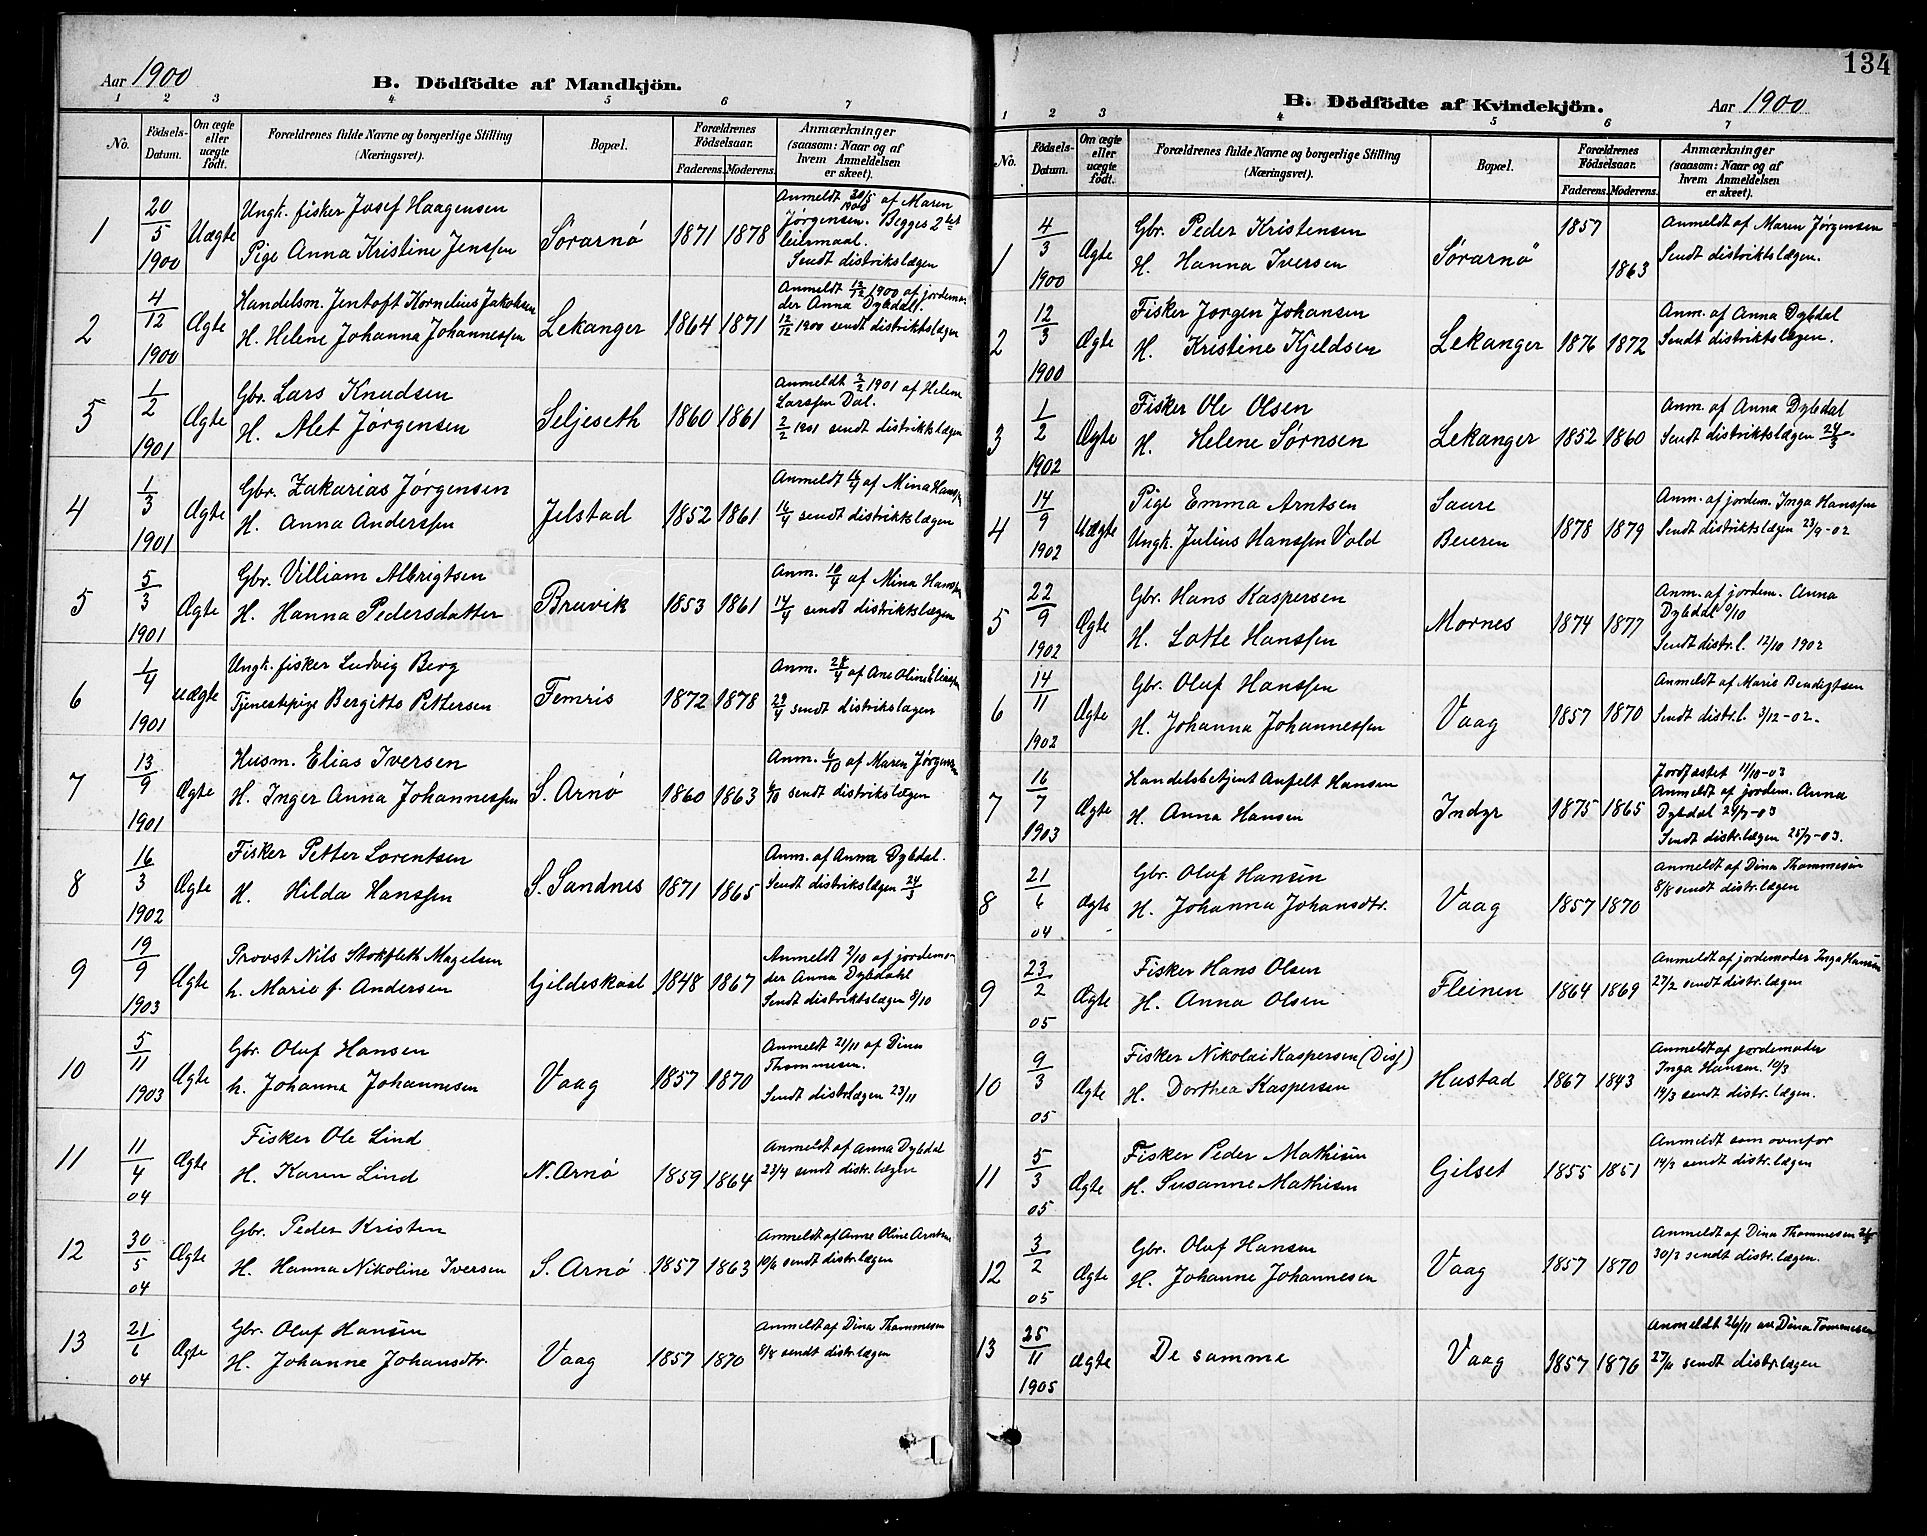 Aar 1900
B. Dödfödte af Mandkjön.
1 2 3 4 5 6 7
No.
Födsels-Datum.
Om ægte eller uægte födt.
Forældrenes fulde Navne og borgerlige Stilling (Næringsvei).
Bopæl.
Forældrenes Födselsaar.
Faderens. Moderens.
Anmærkninger (saasom: Naar og af hvem Anmeldelsen er skeet).
1 20/5 1900 Uægte
Ungk. fisker Josef Haagensen
Pige Anna Kristine Jenssen
Sørarnø 1871 1878
Anmeldt 30/5 1900 af Maren
Jørgensen. Begges 2det
leiermaal.
Sendt distrikslægen
2 4/12 1900 Ægte
Handelsm. Jentoft Kornelius Jakobsen
H. Helene Johanna Johannessen
Lekanger 1864 1871
Anmeldt 12/12 1900 af jordemo-
der Anna Dybdal.
12/12 1900 sendt distriktslægen
5 1/2 1901 Ægte
Gbr. Lars Knudsen
H. Alet Jørgensen
Seljeseth 1860 1861
Anmeldt 2/2 1901 af Helene
Larssen Dal.
2/2 1901 sendt distriktslægen
4 1/3 1901 Ægte
Gbr. Zakarias Jørgensen
H. Anna Anderssen
Jelstad 1852 1861
Anmeldt af Mina Hanss
sendt distriktslægen
5 5/3 1901 Ægte
Gbr. Villiam Albrigtsen
H. Hanna Pedersdatter
Bruvik 1853 1861
Anm. 10/4 af Mina Hanss
14/4 sendt distriktslægen
6 1/4 1901 uægte
Ungk. fisker Ludvig Berg
Tjenestepige Bergitte Pettersen
Femris 1872 1878
Anm. 28/4 af Ane Oline Eliassen
29/4 sendt distrikslægen
7 13/9 1901 Ægte
Husm. Elias Iversen
H. Inger Anna Johannessen
S. Arnø 1860 1863
Anm. 6/10 af Maren Jørgensen
6/10 sendt distrikslægen
8 16/3 1902 Ægte
Fisker Petter Lorentsen
H. Hilda Hanssen
S. Sandnes 1871 1865
Anm. af Anna Dybdal.
Sendt distrikslægen 24/3
9 19/9 1903 Ægte
Provst Nils Stockfleth Magelsen
h. Marie f. Andersen
Gildeskaal 1848 1867
Anmeldt 7/10 af jordemo-
der Anna Dybdahl
Sendt distriktslægen 8/10
10 5/11 1903 Ægte
Gbr. Oluf Hansen
h. Johanna Johannesen
Vaag 1857 1870
Anmeldt 21/11 af Dina
Thommesen.
Sendt distr.lægen 23/11
11 11/4 04 Ægte
Fisker Ole Lind
H. Karen Lind
N. Arnø 1859 1864
Anmeldt af Anna Dybdal
23/4 sendt distr. lægen
12 30/5 04 Ægte
Gbr. Peder Kristen
H. Hanna Nikoline Iversen
S. Arnø 1857 1863
Anmeldt af Anne Oline Arntsen
10/6 sendt distr.lægen
13 21/6 04 Ægte
Gbr. Oluf Hansen
H. Johanne Johansdtr.
Vaag 1857 1870
Anmeldt af Dina Thommesen
8/8 sendt distr.lægen
134
B. Dödfödte af Kvindekjön.
Aar 1900
1 2 3 4 5 6 7
No.
Födsels-Datum.
Om ægte eller uægte födt.
Forældrenes fulde Navne og borgerlige Stilling (Næringsvei).
Bopæl.
Forældrenes Födselsaar.
Faderens. Moderens.
Anmærkninger (saasom: Naar og af hvem Anmeldelsen er skeet).
1 4/3 1900 Ægte
Gbr. Peder Kristensen
H. Hanna Iversen
Sørarnø 1857 1863
Anmeldt af Maren Jørgensen
Sendt distriktslægen.
2 12/3 1900 Ægte
Fisker Jørgen Johansen
H. Kristine Kjeldsen
Lekanger 1876 1872
Anm. af Anna Dybdal
Sendt distriktslægen.
3 1/2 1902 Ægte
Fisker Ole Olsen
H. Helene Sørnsen
Lekanger 1852 1860
Anm. af Anna Dybdal
Sendt distriktslægen 24/3.
4 14/9 1902 uægte
Pige Emma Arntsen
Ungk. Julius Hanssen Vold
Saure
Beieren
1878 1879
Anm. af jordem. Inga Hanssen
Sendt distriktslægen 23/9-02
5 22/9 1902 Ægte
Gbr. Hans Kaspersen
H. Lotte Hanssen
Mornes 1874 1877
Anm. af jordem. Anna
Dybdal 9/10
Sendt distr.l. 12/10 1902
6 14/11 1902 Ægte
Gbr. Oluf Hanssen
H. Johanna Johannessen
Vaag 1857 1870
Anmeldt af Marie Bendigtsen
Sendt distr.l. 3/12-02.
7 16/7 1903 Ægte
Handelsbetjent Anfelt Hansen
H. Anna Hansen
Indyr 1875 1865
Jordfæstet 11/10-03
Anmeldt af jordem. Anna
Dybdal 24/7-03
Sendt distr.lægen 25/7-03.
8 21/6 04 Ægte
Gbr. Oluf Hansen
H. Johanna Johansdtr.
Vaag 1857 1870
Anmeldt af Dina Thommesen
8/8 sendt distr.lægen
9 23/2 05 Ægte
Fisker Hans Olsen
H. Anna Olsen
Fleinen 1864 1869
Anmeldt af jordemoder Inga Hansen
27/2 sendt distr.lægen
10 9/3 05 Ægte
Fisker Nikolai Kaspersen (Diss)
H. Dorthea Kaspersen
Hustad 1867 1843
Anmeldt af jordemoder
Inga Hansen. 10/3
14/3 sendt distr.lægen.
11 5/3 05 Ægte
Fisker Peder Mathisen
H. Susanne Mathisen
Gilset 1855 1851
Anmeldt som ovenfor
14/3 sendt distr.lægen
12 3/2 05 Ægte
Gbr. Oluf Hansen
H. Johanne Johannesen
Vaag 1857 1870
Anmeldt af Dina Thommesen
30/3 sendt distr.lægen.
13 25/11 1905 ægte
De samme
Vaag 1857 1876
Anmeldt 26/11 av Dina Tommesen
27/11 sendt distr.lægen